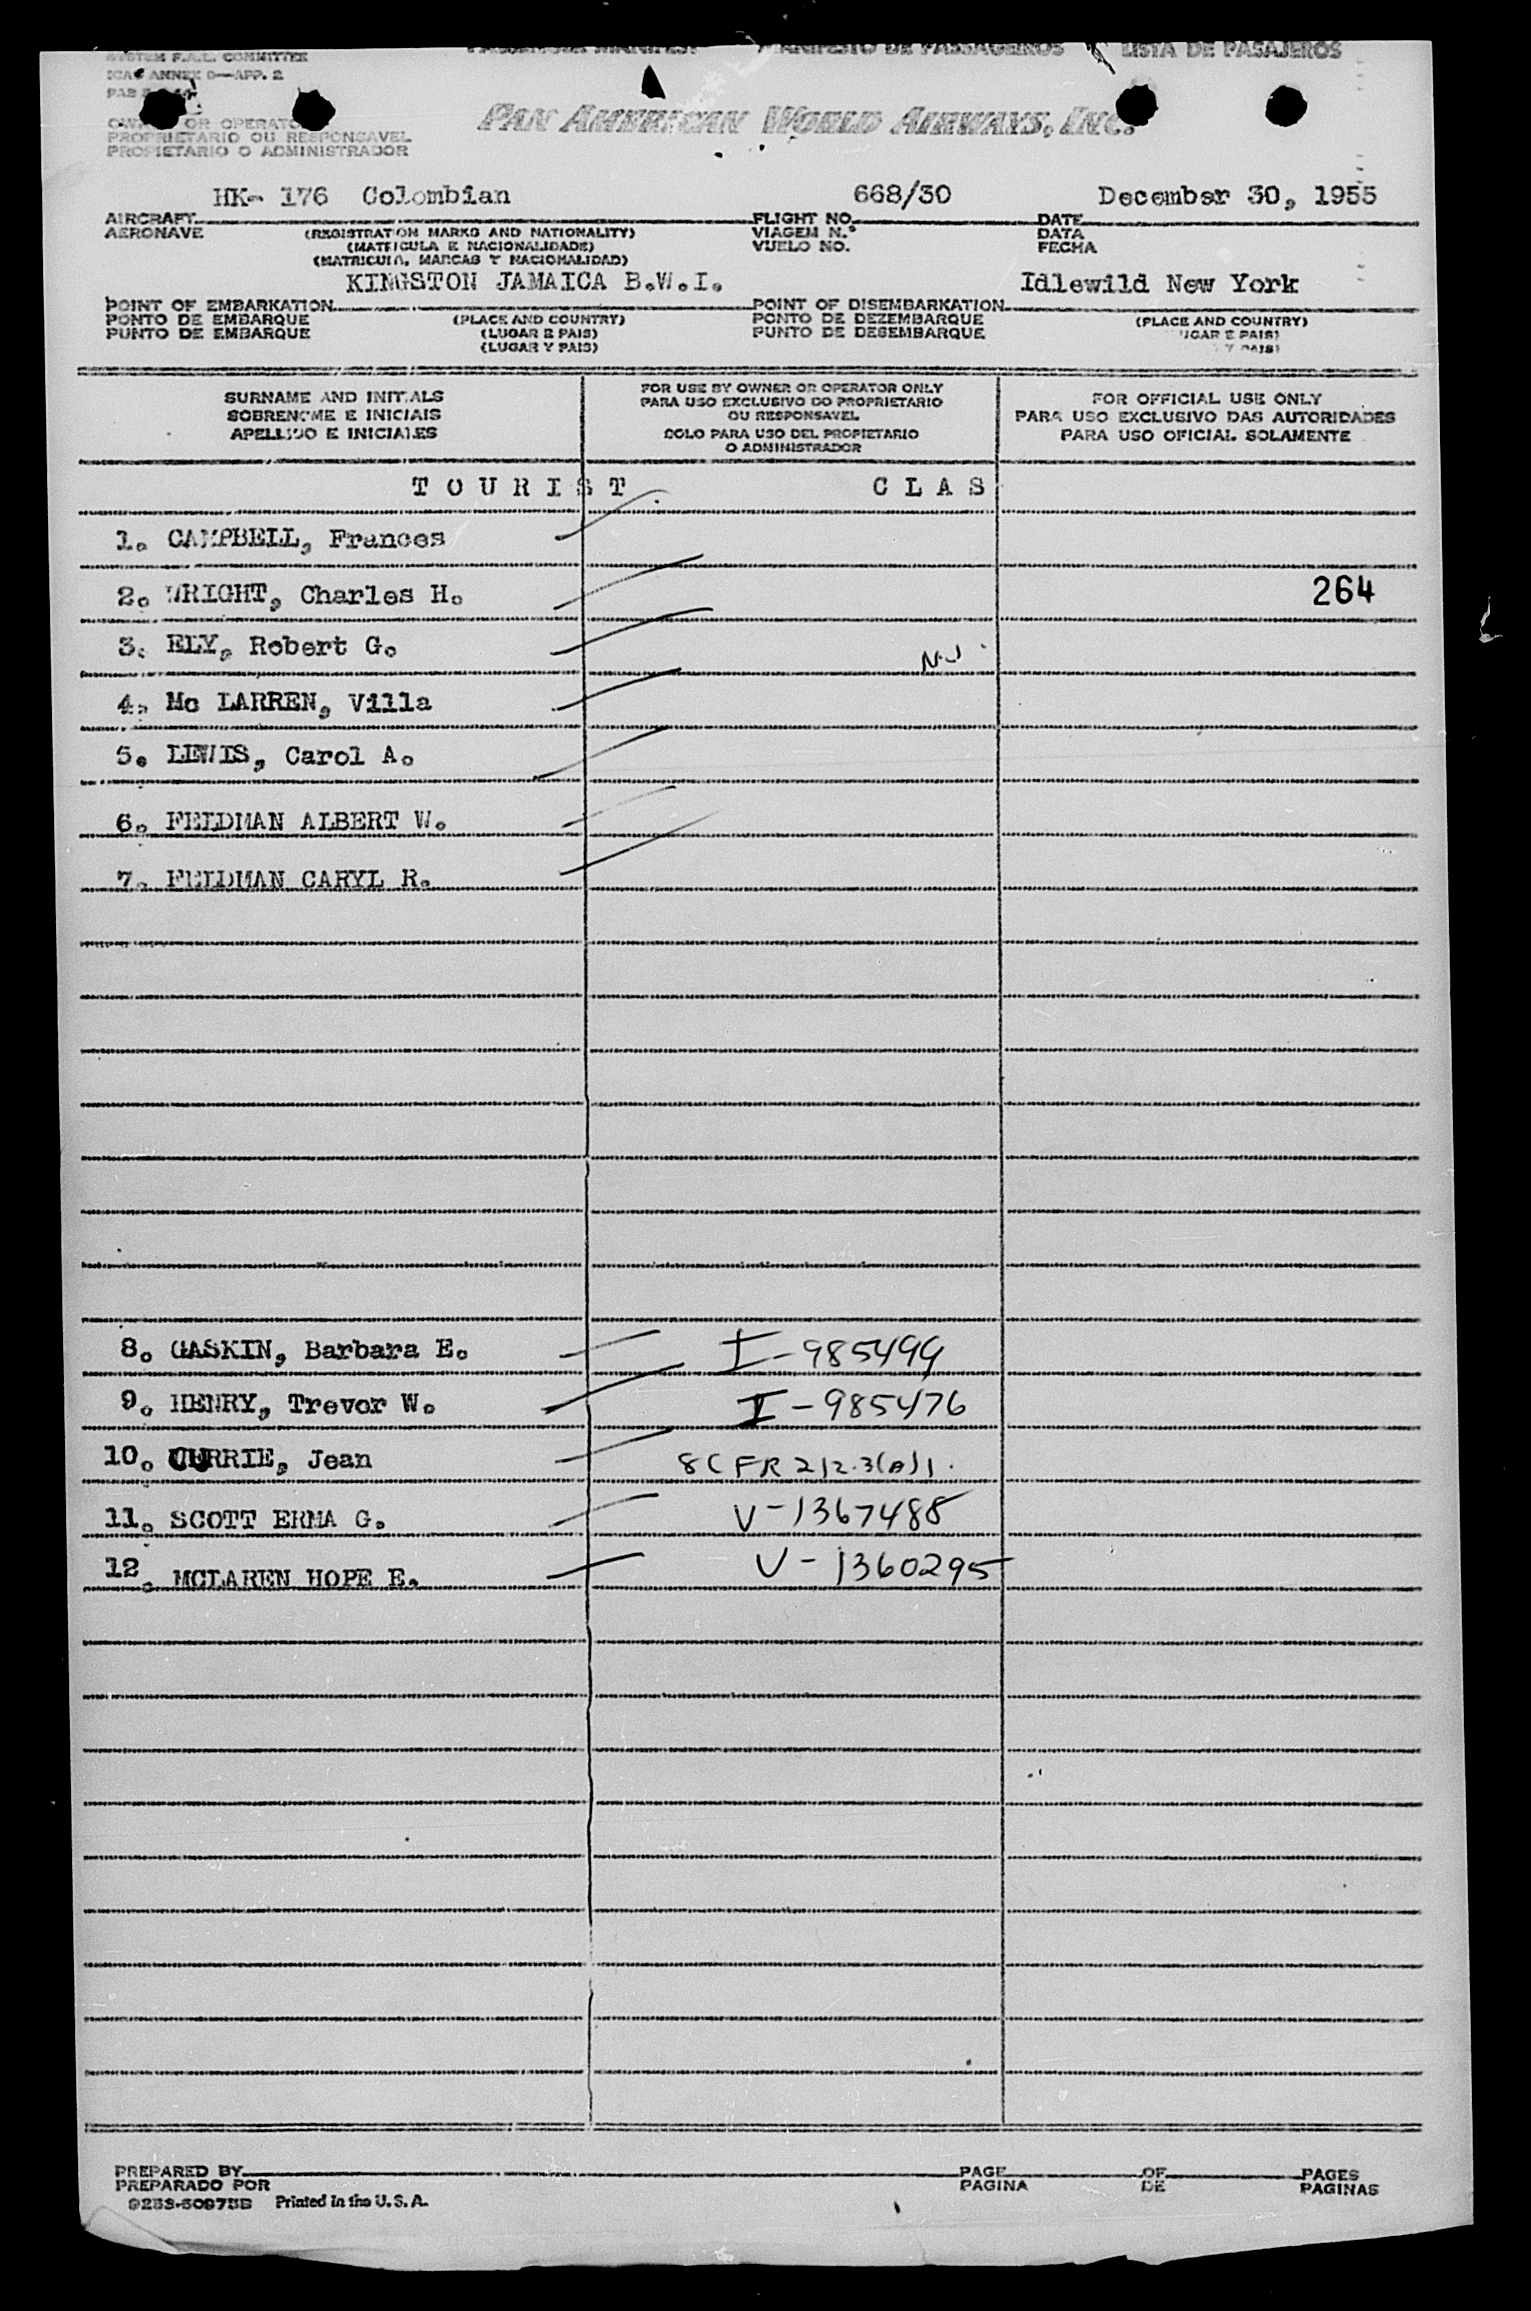 PASSENGER MANIFEST MANIFESTO DE PASSAGEIROS LISTA DE PASAJEROS
SYSTEM F.A.L. COMMITTEE
ICAO ANNEX 9—APP. 2
OWNER OR OPERATOR
PROPRIETARIO OU RESPONSAVEL
PROPIETARIO O ADMINISTRADOR
PAN AMERICAN WORLD AIRWAYS, INC.
HK- 176 Colombian 668/30 December 30, 1955
AIRCRAFT FLIGHT NO. DATE
AERONAVE (REGISTRATION MARKS AND NATIONALITY) VIAGEM N.º DATA
(MATRICULA E NACIONALIDADE) VUELO NO. FECHA
(MATRICULA, MARCAS Y NACIONALIDAD)
KINGSTON JAMAICA B.W.I. Idlewild New York
POINT OF EMBARKATION POINT OF DISEMBARKATION
PONTO DE EMBARQUE (PLACE AND COUNTRY) PONTO DE DEZEMBARQUE (PLACE AND COUNTRY)
PUNTO DE EMBARQUE (LUGAR E PAIS) PUNTO DE DESEMBARQUE UGAR E PAIS)
(LUGAR Y PAIS) Y PAIS)
SURNAME AND INITIALS
SOBRENOME E INICIAIS
APELLIDO E INICIALES
FOR USE BY OWNER OR OPERATOR ONLY
PARA USO EXCLUSIVO DO PROPRIETARIO
OU RESPONSAVEL
SOLO PARA USO DEL PROPIETARIO
O ADMINISTRADOR
FOR OFFICIAL USE ONLY
PARA USO EXCLUSIVO DAS AUTORIDADES
PARA USO OFICIAL SOLAMENTE
T O U R I S T C L A S
1. CAMPBELL, Frances
2. WRIGHT, Charles H. 264
3. ELY, Robert G. N.J.
4. Mc LARREN, Villa
5. LEWIS, Carol A.
6. FELDMAN ALBERT W.
7. FELDMAN CARYL R.
8. GASKIN, Barbara E. I-985499
9. HENRY, Trevor W. I-985476
10. CURRIE, Jean 8 CFR 212.3(A)1.
11. SCOTT ERMA G. V-1367488
12. MCLAREN HOPE E. V-1360295
PREPARED BY PAGE OF PAGES
PREPARADO POR PAGINA DE PAGINAS
9253-50975B Printed in the U.S.A.